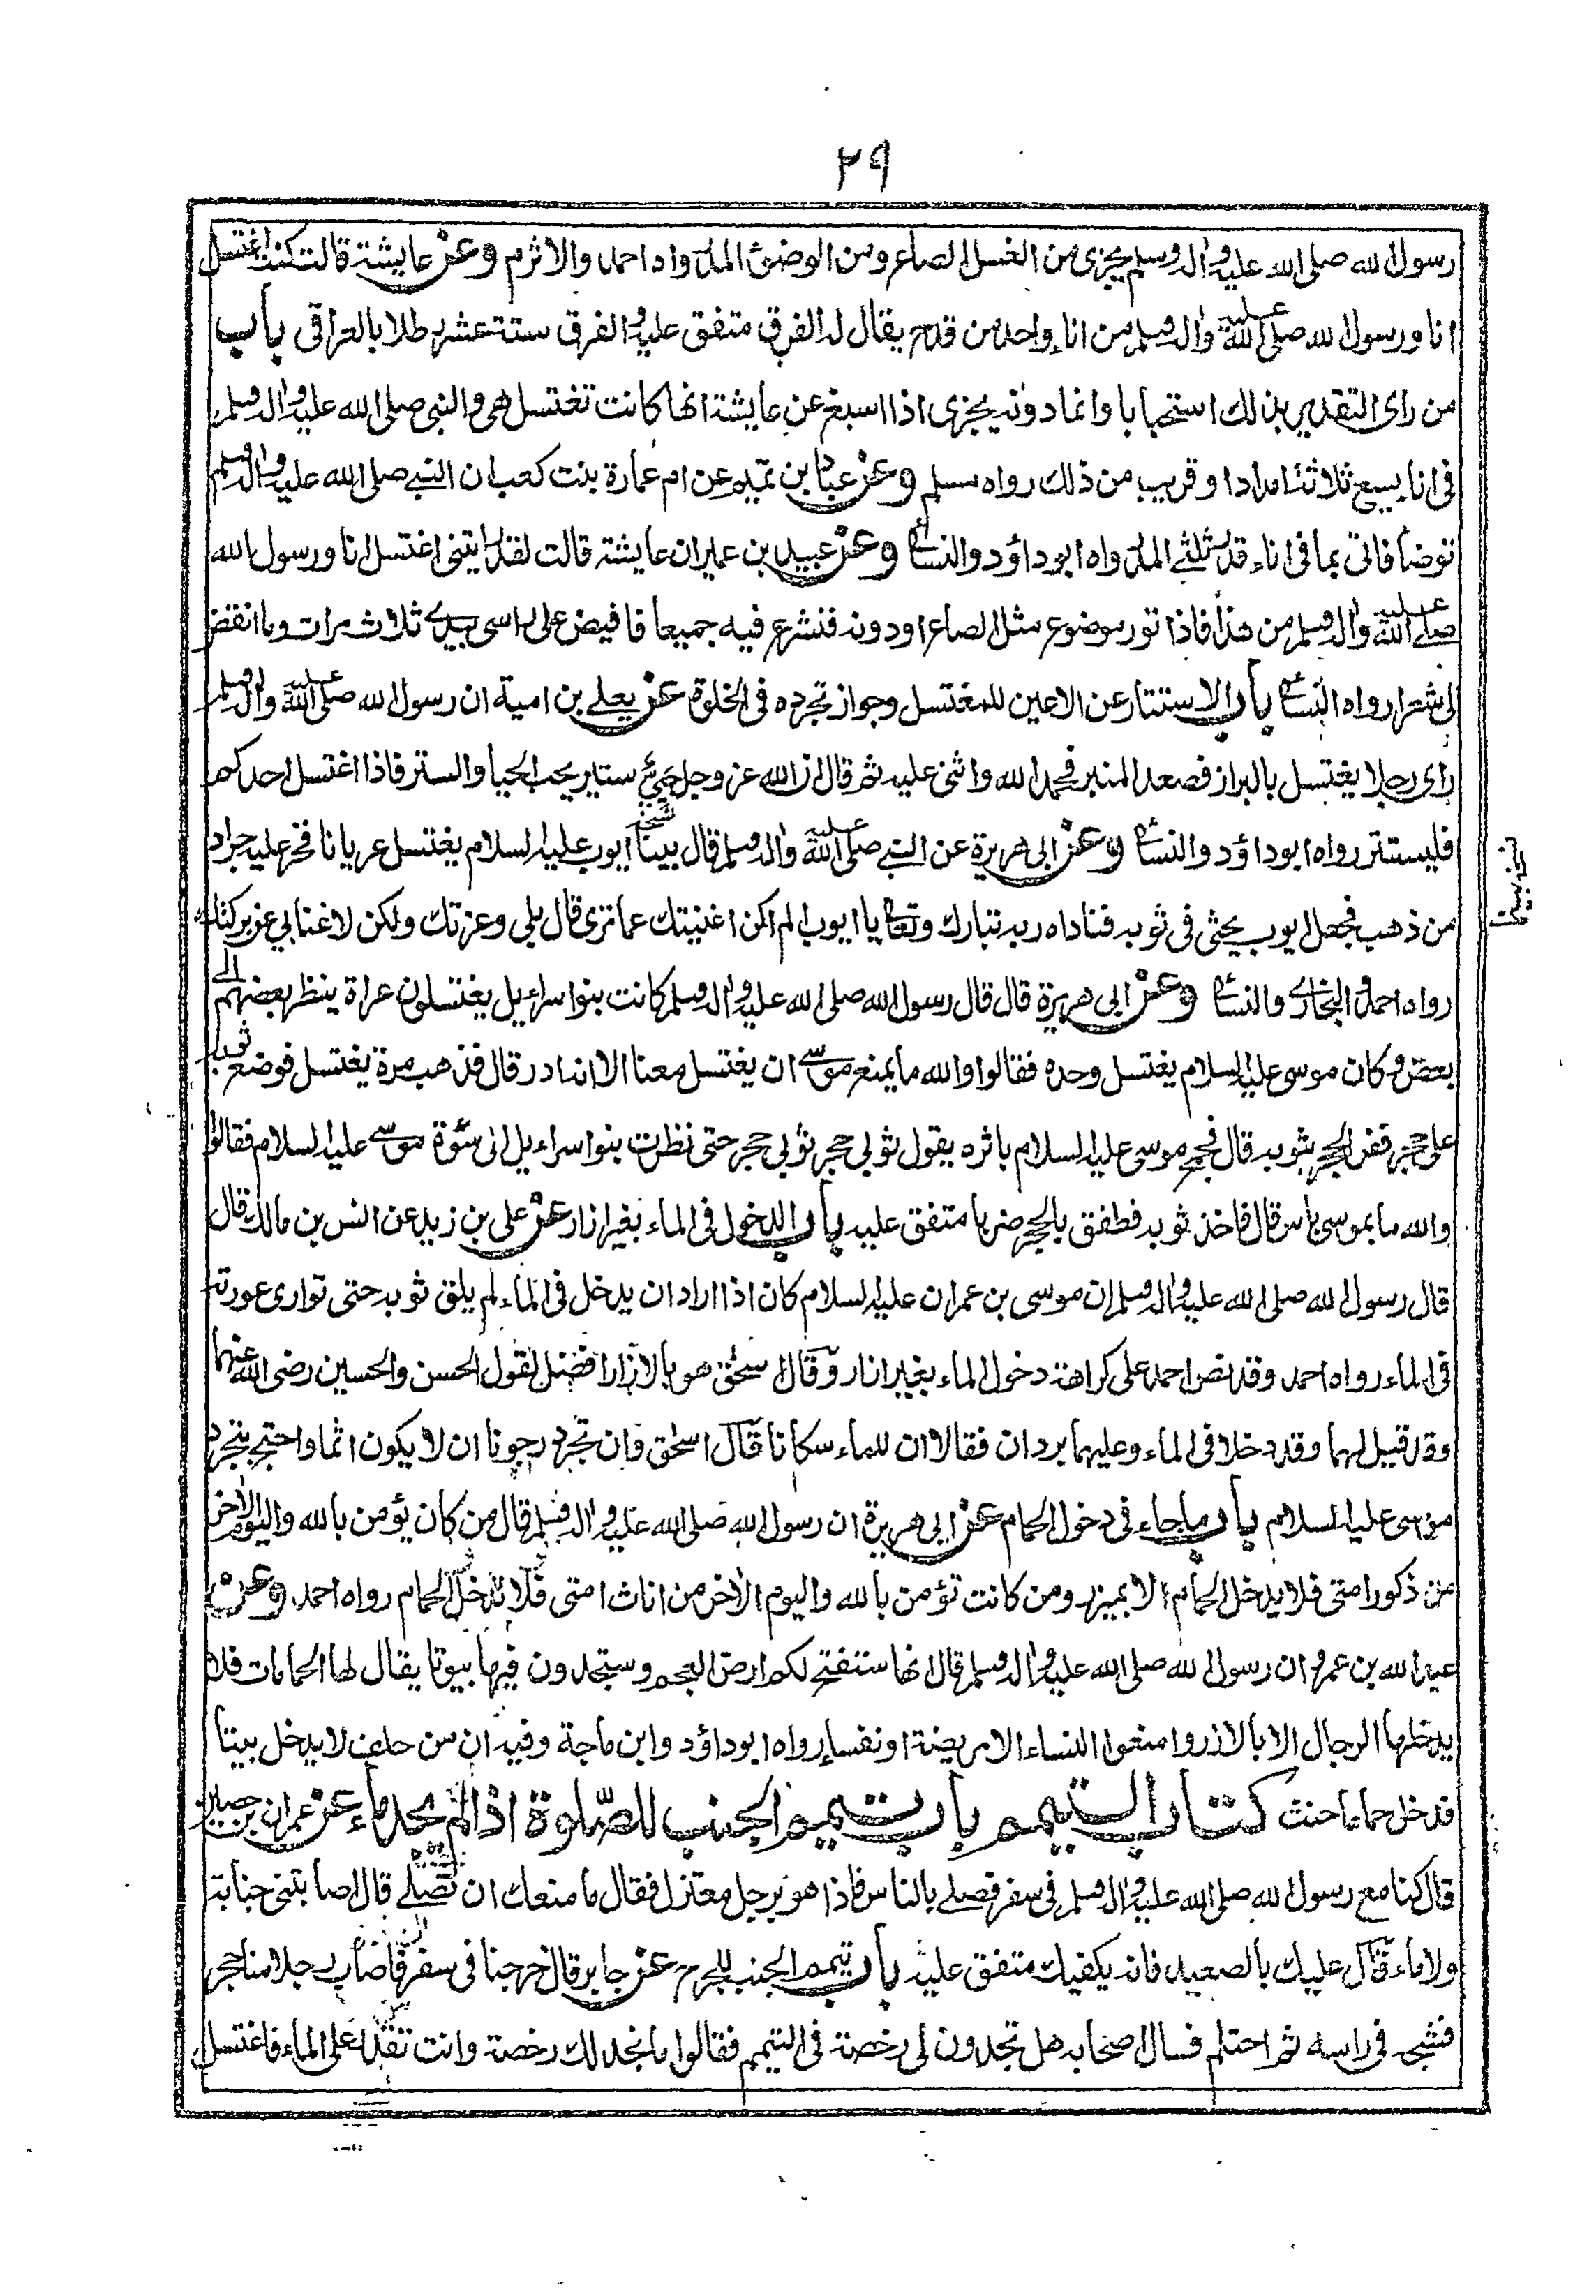 ٢٩
رسول الله صلى الله عليه واله وسلم يجزى من الغسل الصاع ومن الوضوء المد رواه احمد والاثرم وعن عايشة قالت كنت اغتسل
انا ورسول الله صلى الله عليه واله وسلم من اناء واحد من قدح يقال له الفرق متفق عليه والفرق ستة عشر رطلا بالعراقى باب
من راى التقدير بذلك استحبابا وانما دونه يجزى اذا اسبغ عن عايشة انها كانت تغتسل هى والنبى صلى الله عليه واله وسلم
فى انا يسع ثلاثة امداد او قريب من ذلك رواه مسلم وعن عباد بن تميم عن ام عمارة بنت كعب ان النبى صلى الله عليه واله وسلم
توضأ فاتى بما فى اناء قدر ثلثى المد رواه ابوداؤد والنسائى وعن عبيد بن عمير ان عايشة قالت لقد رايتنى اغتسل انا ورسول الله
صلى الله عليه واله وسلم من هذا فاذا تور موضوع مثل الصاع اودونه فنشرع فيه جميعا فافيض على راسى بيدى ثلاث مرات وما انقض
لى شعرا رواه النسائى باب الاستتار عن الاعين للمغتسل وجواز تجرده فى الخلوة عن يعلى بن امية ان رسول الله صلى الله عليه واله وسلم
راى رجلا يغتسل بالبراز فصعد المنبر فحمد الله واثنى عليه ثم قال ان الله عز وجل حيى ستير يحب الحيا والستر فاذا اغتسل احدكم
فليستتر رواه ابوداؤد والنسائى وعن ابى هريرة عن النبى صلى الله عليه واله وسلم قال بينا ايوب عليه السلام يغتسل عريانا فخر عليه جراد
من ذهب فجعل ايوب يحثى فى ثوبه فناداه ربه تبارك وتعالى يا ايوب الم اكن اغنيتك عما ترى قال بلى وعزتك ولكن لا غنا بى عن بركتك
رواه احمد والبخارى والنسائى وعن ابى هريرة قال قال رسول الله صلى الله عليه واله وسلم كانت بنوا سراءيل يغتسلون عراة ينظر بعضهم الى
بعض وكان موسى عليه السلام يغتسل وحده فقالوا والله ما يمنع موسى ان يغتسل معنا الا انه ادر قال فذهب مرة يغتسل فوضع ثوبه
على حجر ففر الحجر بثوبه قال فجمح موسى عليه السلام باثره يقول ثوبى حجر ثوبى حجر حتى نظرت بنوا سراءيل الى سوءة موسى عليه السلام فقالوا
والله ما بموسى باس قال فاخذ ثوبه فطفق بالحجر ضربا متفق عليه باب الدخول فى الماء بغير ازار عن على بن زيد عن انس بن مالك قال
قال رسول الله صلى الله عليه واله وسلم ان موسى بن عمران عليه السلام كان اذا اراد ان يدخل فى الماء لم يلق ثوبه حتى توارى عورته
فى الماء رواه احمد وقد نص احمد على كراهة دخول الماء بغير ازار وقال اسحق هو بالازار افضل لقول الحسن والحسين رضى الله عنهما
وقد قيل لهما وقد دخلا فى الماء وعليهما بردان فقالا ان للماء سكانا قال اسحق وان تجرد رجونا ان لا يكون اثما واحتج بتجرد
موسى عليه السلام باب ماجاء فى دخول الحمام عن ابى هريرة ان رسول الله صلى الله عليه واله وسلم قال من كان يؤمن بالله واليوم الاخر
من ذكور امتى فلا يدخل الحمام الا بميزر ومن كانت تؤمن بالله واليوم الاخر من اناث امتى فلا تدخل الحمام رواه احمد وعن
عبد الله بن عمرو ان رسول الله صلى الله عليه واله وسلم قال انها ستفتح لكم ارض العجم وستجدون فيها بيوتا يقال لها الحمامات فلا
يدخلها الرجال الا بالازر وامنعوا النساء الا مريضة او نفساء رواه ابوداؤد وابن ماجة وفيه ان من حلف لا يدخل بيتا
فدخل حماما حنث كتاب التيمم باب تيمم الجنب للصلوة اذا لم يجد ماء عن عمران بن حصين
قال كنا مع رسول الله صلى الله عليه واله وسلم فى سفر فصلى بالناس فاذا هو برجل معتزل فقال ما منعك ان تصلى قال اصابتنى جنابة
ولا ماء قال عليك بالصعيد فانه يكفيك متفق عليه باب تيمم الجنب للجرح عن جابر قال خرجنا فى سفر فاصاب رجلا منا حجر
فشجه فى راسه ثم احتلم فسال اصحابه هل تجدون لى رخصة فى التيمم فقالوا ما نجد لك رخصة وانت تقدر على الماء فاغتسل